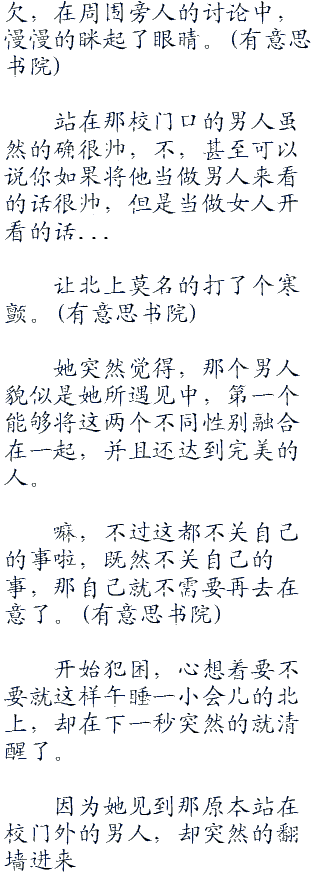 欠，在周围旁人的讨论中，
慢慢的眯起了眼睛。(有意思
书院)
站在那校门口的男人虽
然的确很帅，不，甚至可以
说你如果将他当做男人来看
的话很帅，但是当做女人开
看的话...
让北上莫名的打了个寒
颤。(有意思书院)
她突然觉得，那个男人
貌似是她所遇见中，第一个
能够将这两个不同性别融合
在一起，并且还达到完美的
人。
嘛，不过这都不关自己
的事啦，既然不关自己的
事，那自己就不需要再去在
意了。(有意思书院)
开始犯困，心想着要不
要就这样午睡一小会儿的北
上，却在下一秒突然的就清
醒了。
因为她见到那原本站在
校门外的男人，却突然的翻
墙进来